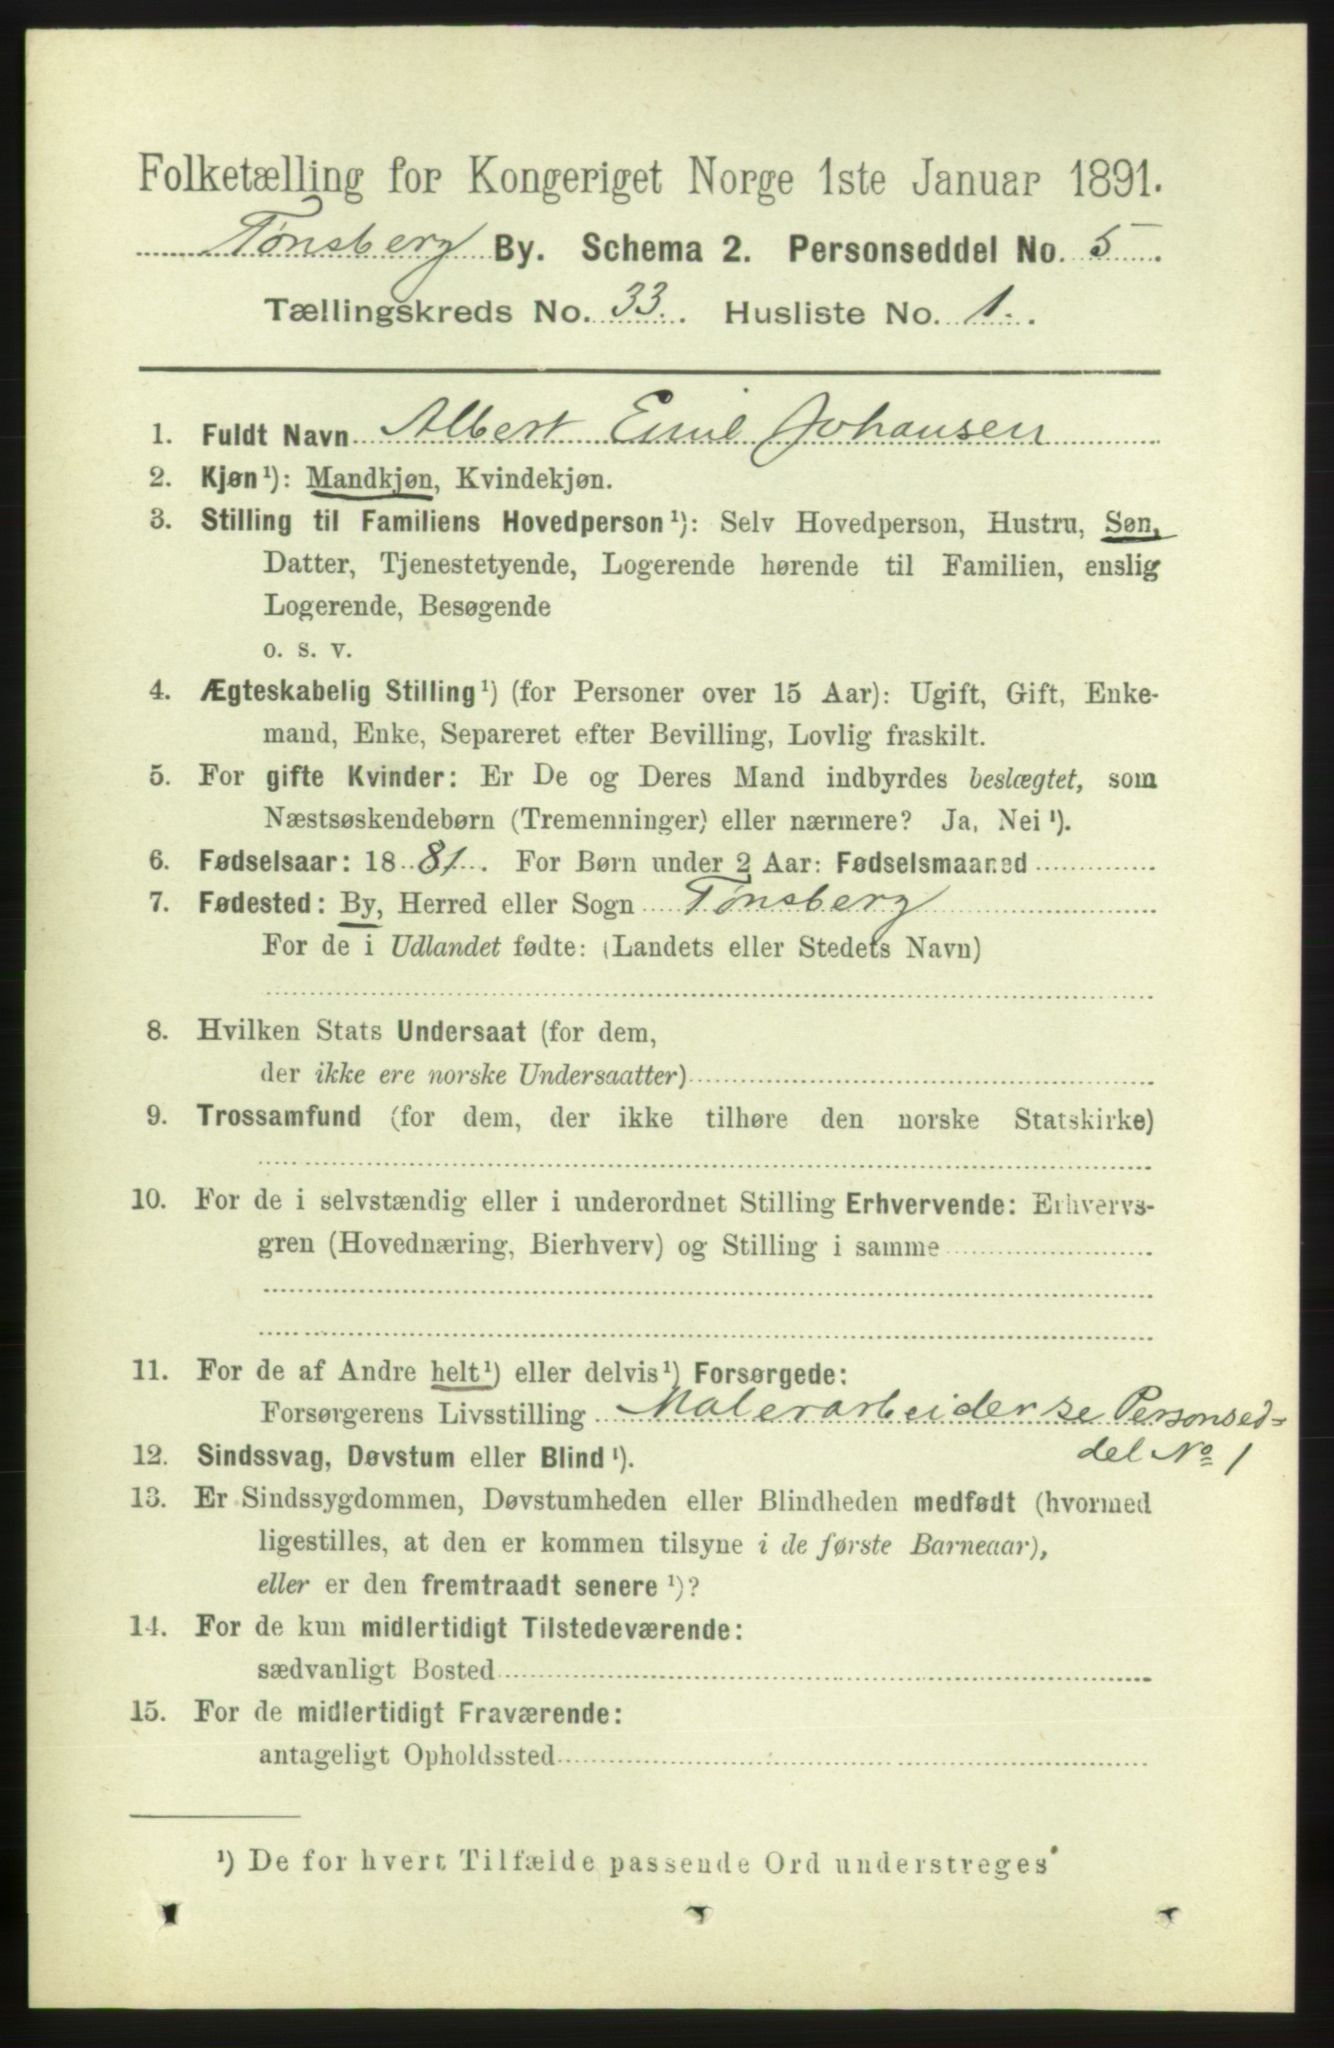 Folketælling for Kongeriget Norge 1ste Januar 1891.
Tønsberg By. Schema 2. Personseddel No. 5
Tællingskreds No. 33. Husliste No. 1.
1. Fuldt Navn Albert Emil Johansen
2. Kjøn¹): Mandkjøn, Kvindekjøn.
3. Stilling til Familiens Hovedperson¹): Selv Hovedperson, Hustru, Søn,
Datter, Tjenestetyende, Logerende hørende til Familien, enslig
Logerende, Besøgende
o. s. v.
4. Ægteskabelig Stilling¹) (for Personer over 15 Aar): Ugift, Gift, Enke-
mand, Enke, Separeret efter Bevilling, Lovlig fraskilt.
5. For gifte Kvinder: Er De og Deres Mand indbyrdes beslægtet, som
Næstsøskendebørn (Tremenninger) eller nærmere? Ja, Nei¹).
6. Fødselsaar: 1881. For Børn under 2 Aar: Fødselsmaaned
7. Fødested: By, Herred eller Sogn Tønsberg
For de i Udlandet fødte: (Landets eller Stedets Navn)
8. Hvilken Stats Undersaat (for dem,
der ikke ere norske Undersaatter)
9. Trossamfund (for dem, der ikke tilhøre den norske Statskirke)
10. For de i selvstændig eller i underordnet Stilling Erhvervende: Erhvervs-
gren (Hovednæring, Bierhverv) og Stilling i samme
11. For de af Andre helt¹) eller delvis¹) Forsørgede:
Forsørgerens Livsstilling Malerarbeider se Personsed=
del No 1
12. Sindssvag, Døvstum eller Blind¹).
13. Er Sindssygdommen, Døvstumheden eller Blindheden medfødt (hvormed
ligestilles, at den er kommen tilsyne i de første Barneaar),
eller er den fremtraadt senere¹)?
14. For de kun midlertidigt Tilstedeværende:
sædvanligt Bosted
15. For de midlertidigt Fraværende:
antageligt Opholdssted
¹) De for hvert Tilfælde passende Ord understreges.